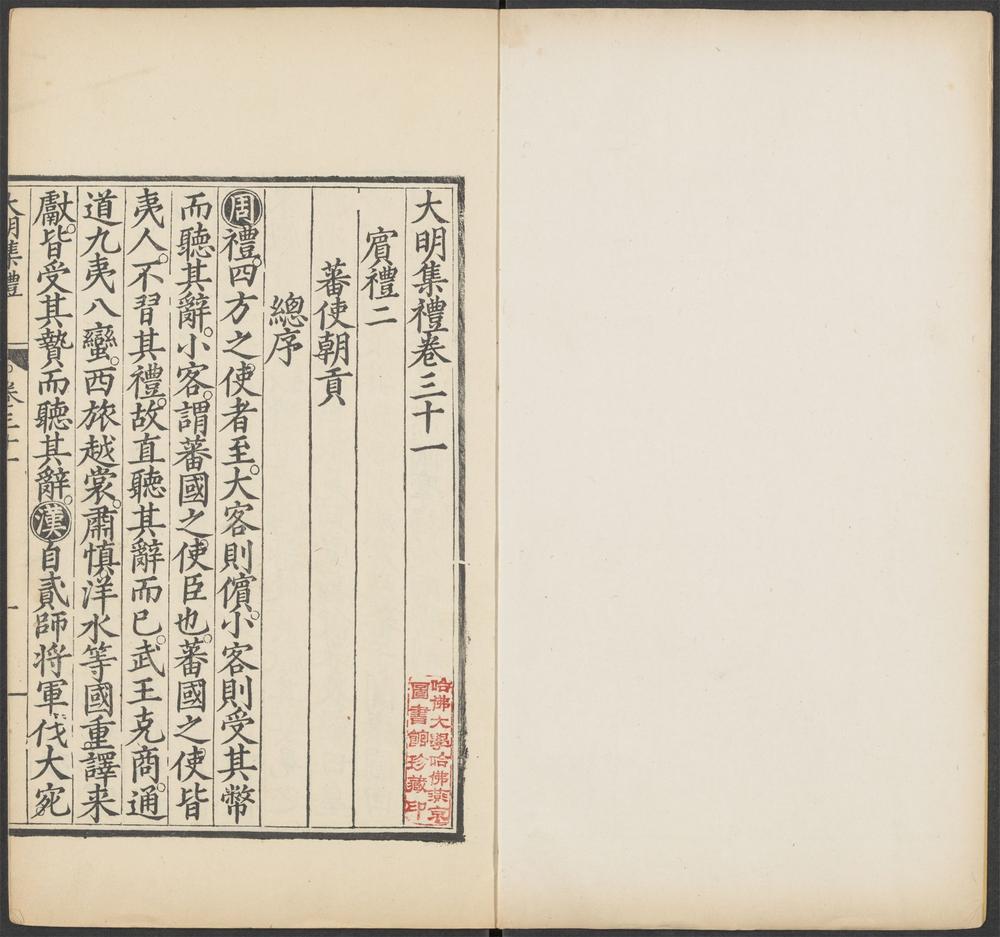 大明集禮卷三十一
賓禮二
蕃使朝貢
總序
周禮。四方之使者至。大客則儐。小客則受其幣
而聽其辭。小客。謂蕃國之使臣也。蕃國之使皆
夷人。不習其禮。故直聽其辭而已。武王克商。通
道九夷八蠻。西旅越裳。肅慎洋水等國重譯来
獻。皆受其贄而聽其辭。漢自貳師將軍伐大宛。
大明集禮 卷三十一 一
哈佛大學哈佛燕京
圖書館珍藏印